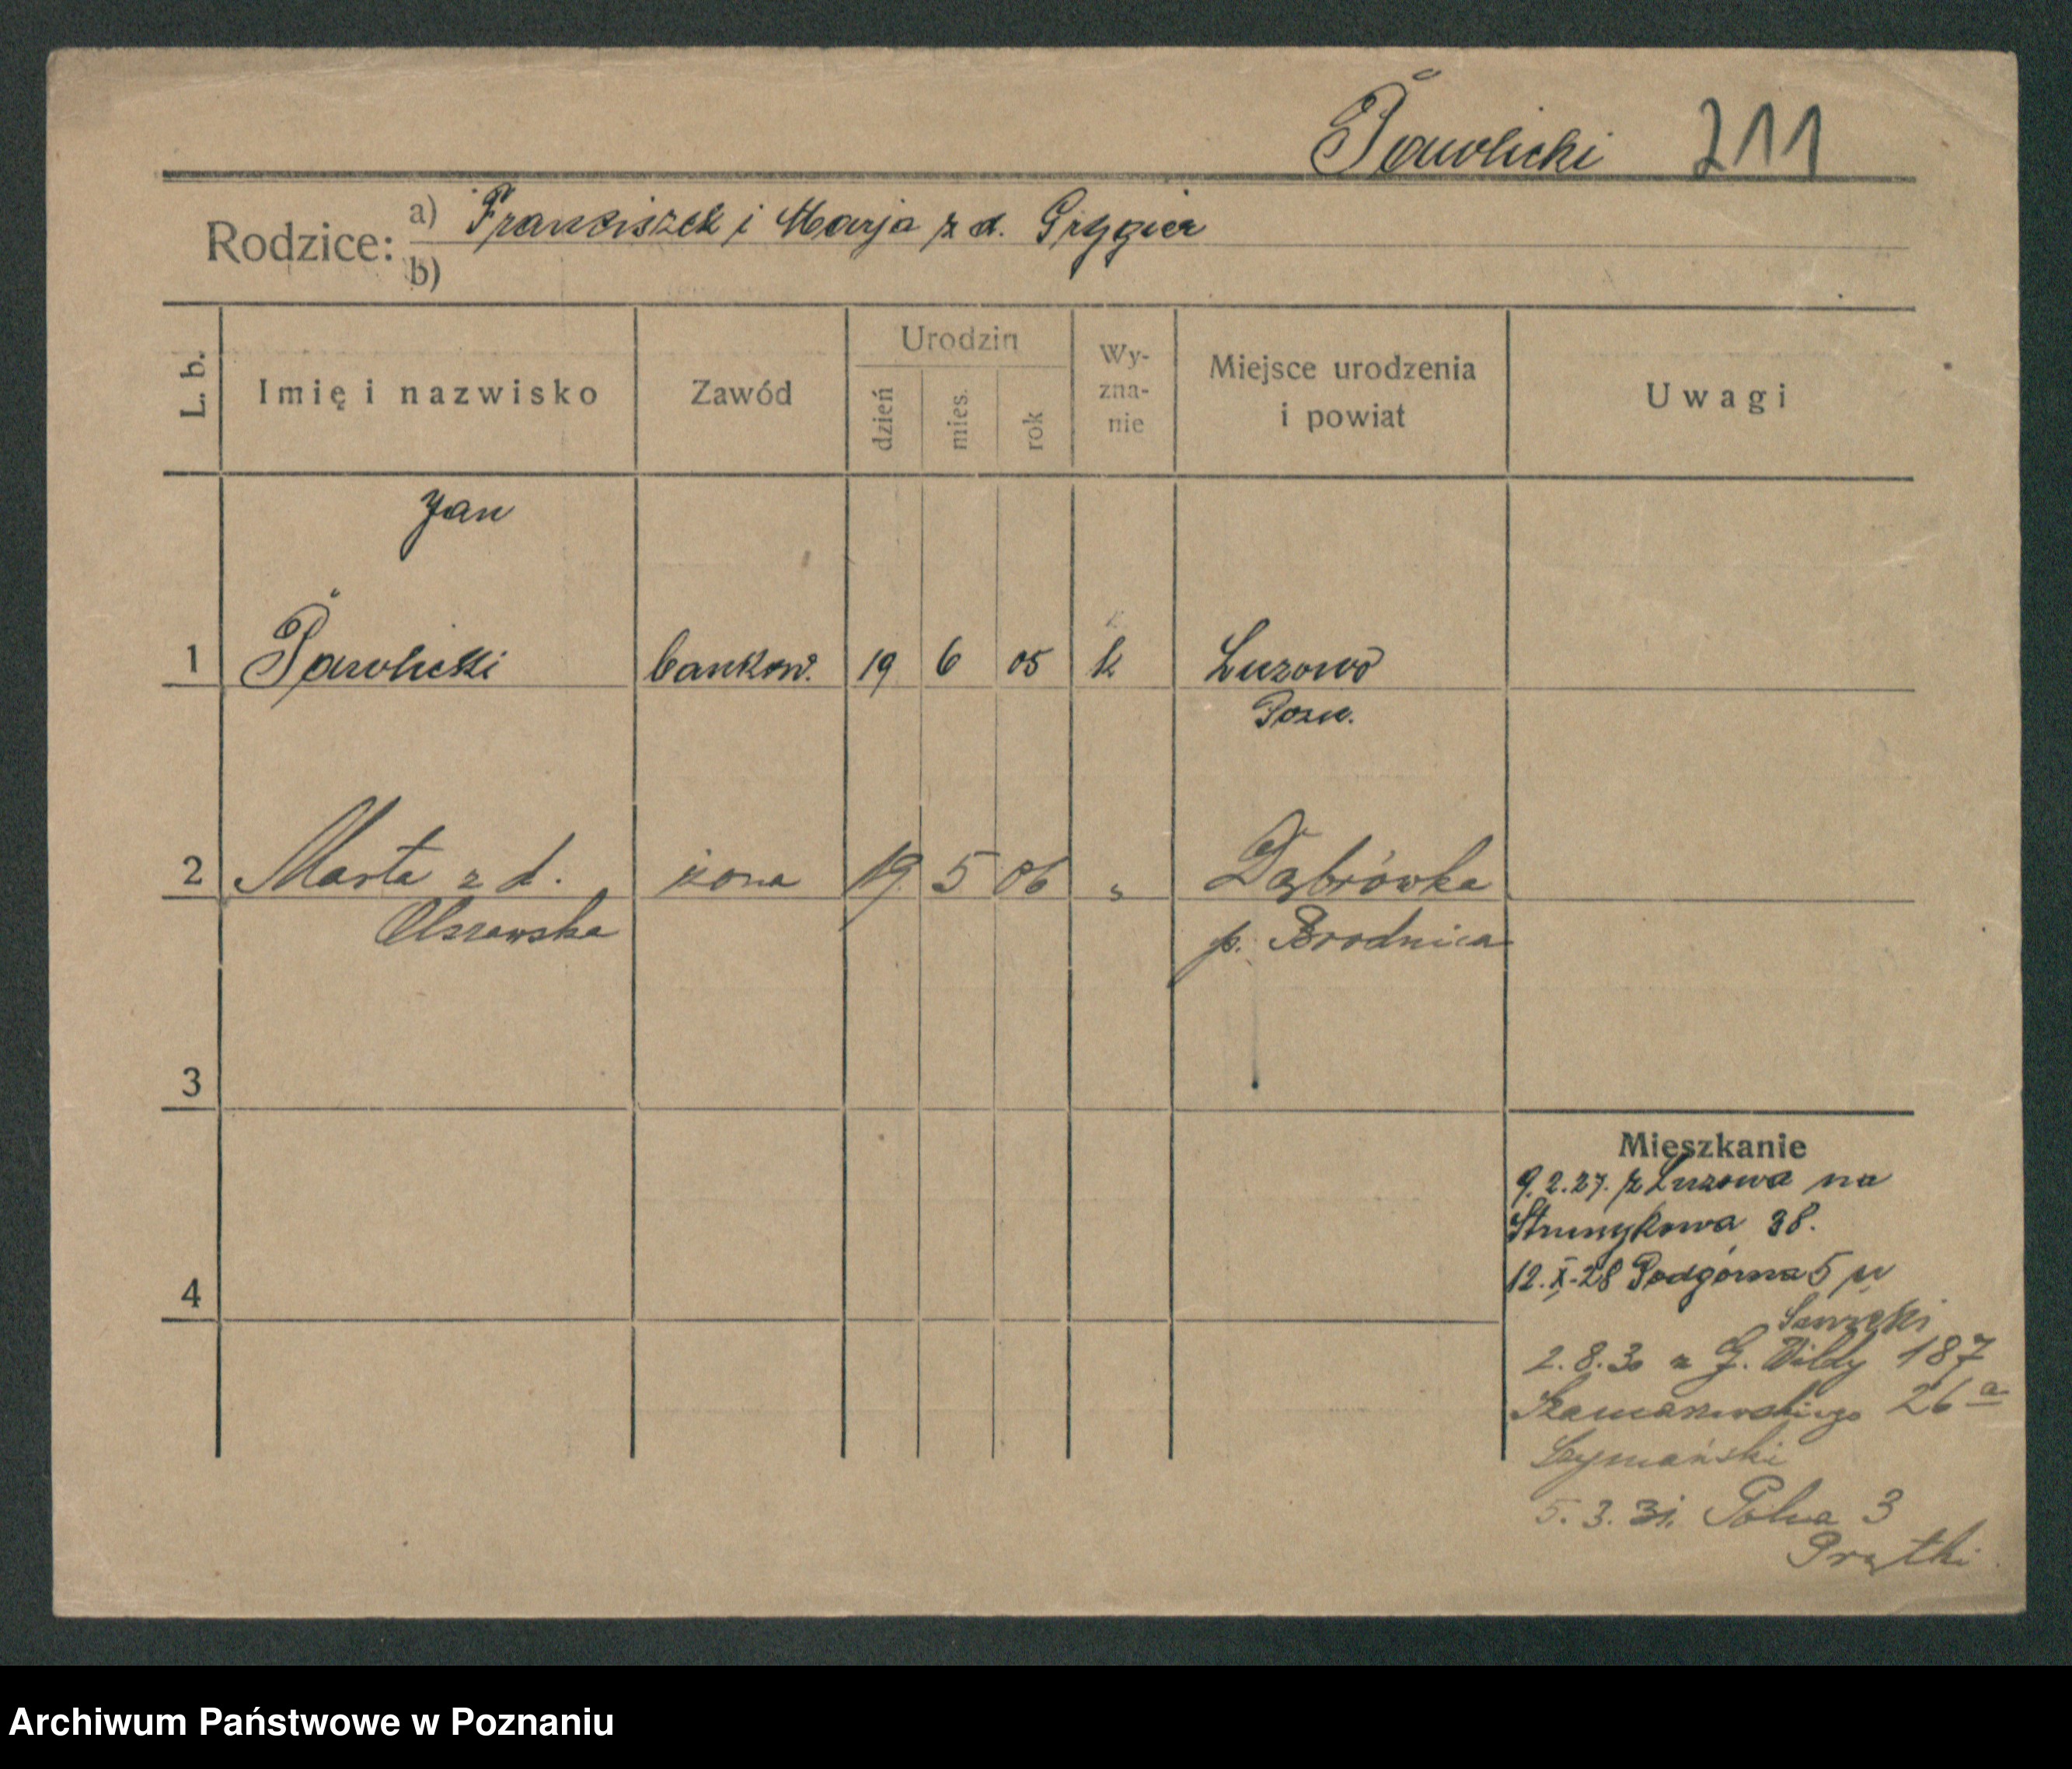 Pawlicki 211
Rodzice: a) Franciszek i Marja z d. Grygier
b)
L. b. Imię i nazwisko Zawód Urodzin dzień mies. rok Wy-zna-nie Miejsce urodzenia i powiat Uwagi
Jan
1 Pawlicki bankow. 19 6 05 k Luzowo
Pozn.
2 Marta z d. żona 19. 5 06 " Dąbrówka
Olszewska p. Brodnica
3
Mieszkanie
9.2.27. z Luzowa na
Strumykowa 38.
4
12.X.28 Podgórna 5 u
2.8.30 z G. Wildy 187
Szamarzewskiego 26a
Szymański
5.3.31. Polna 3
Prątki
Archiwum Państwowe w Poznaniu